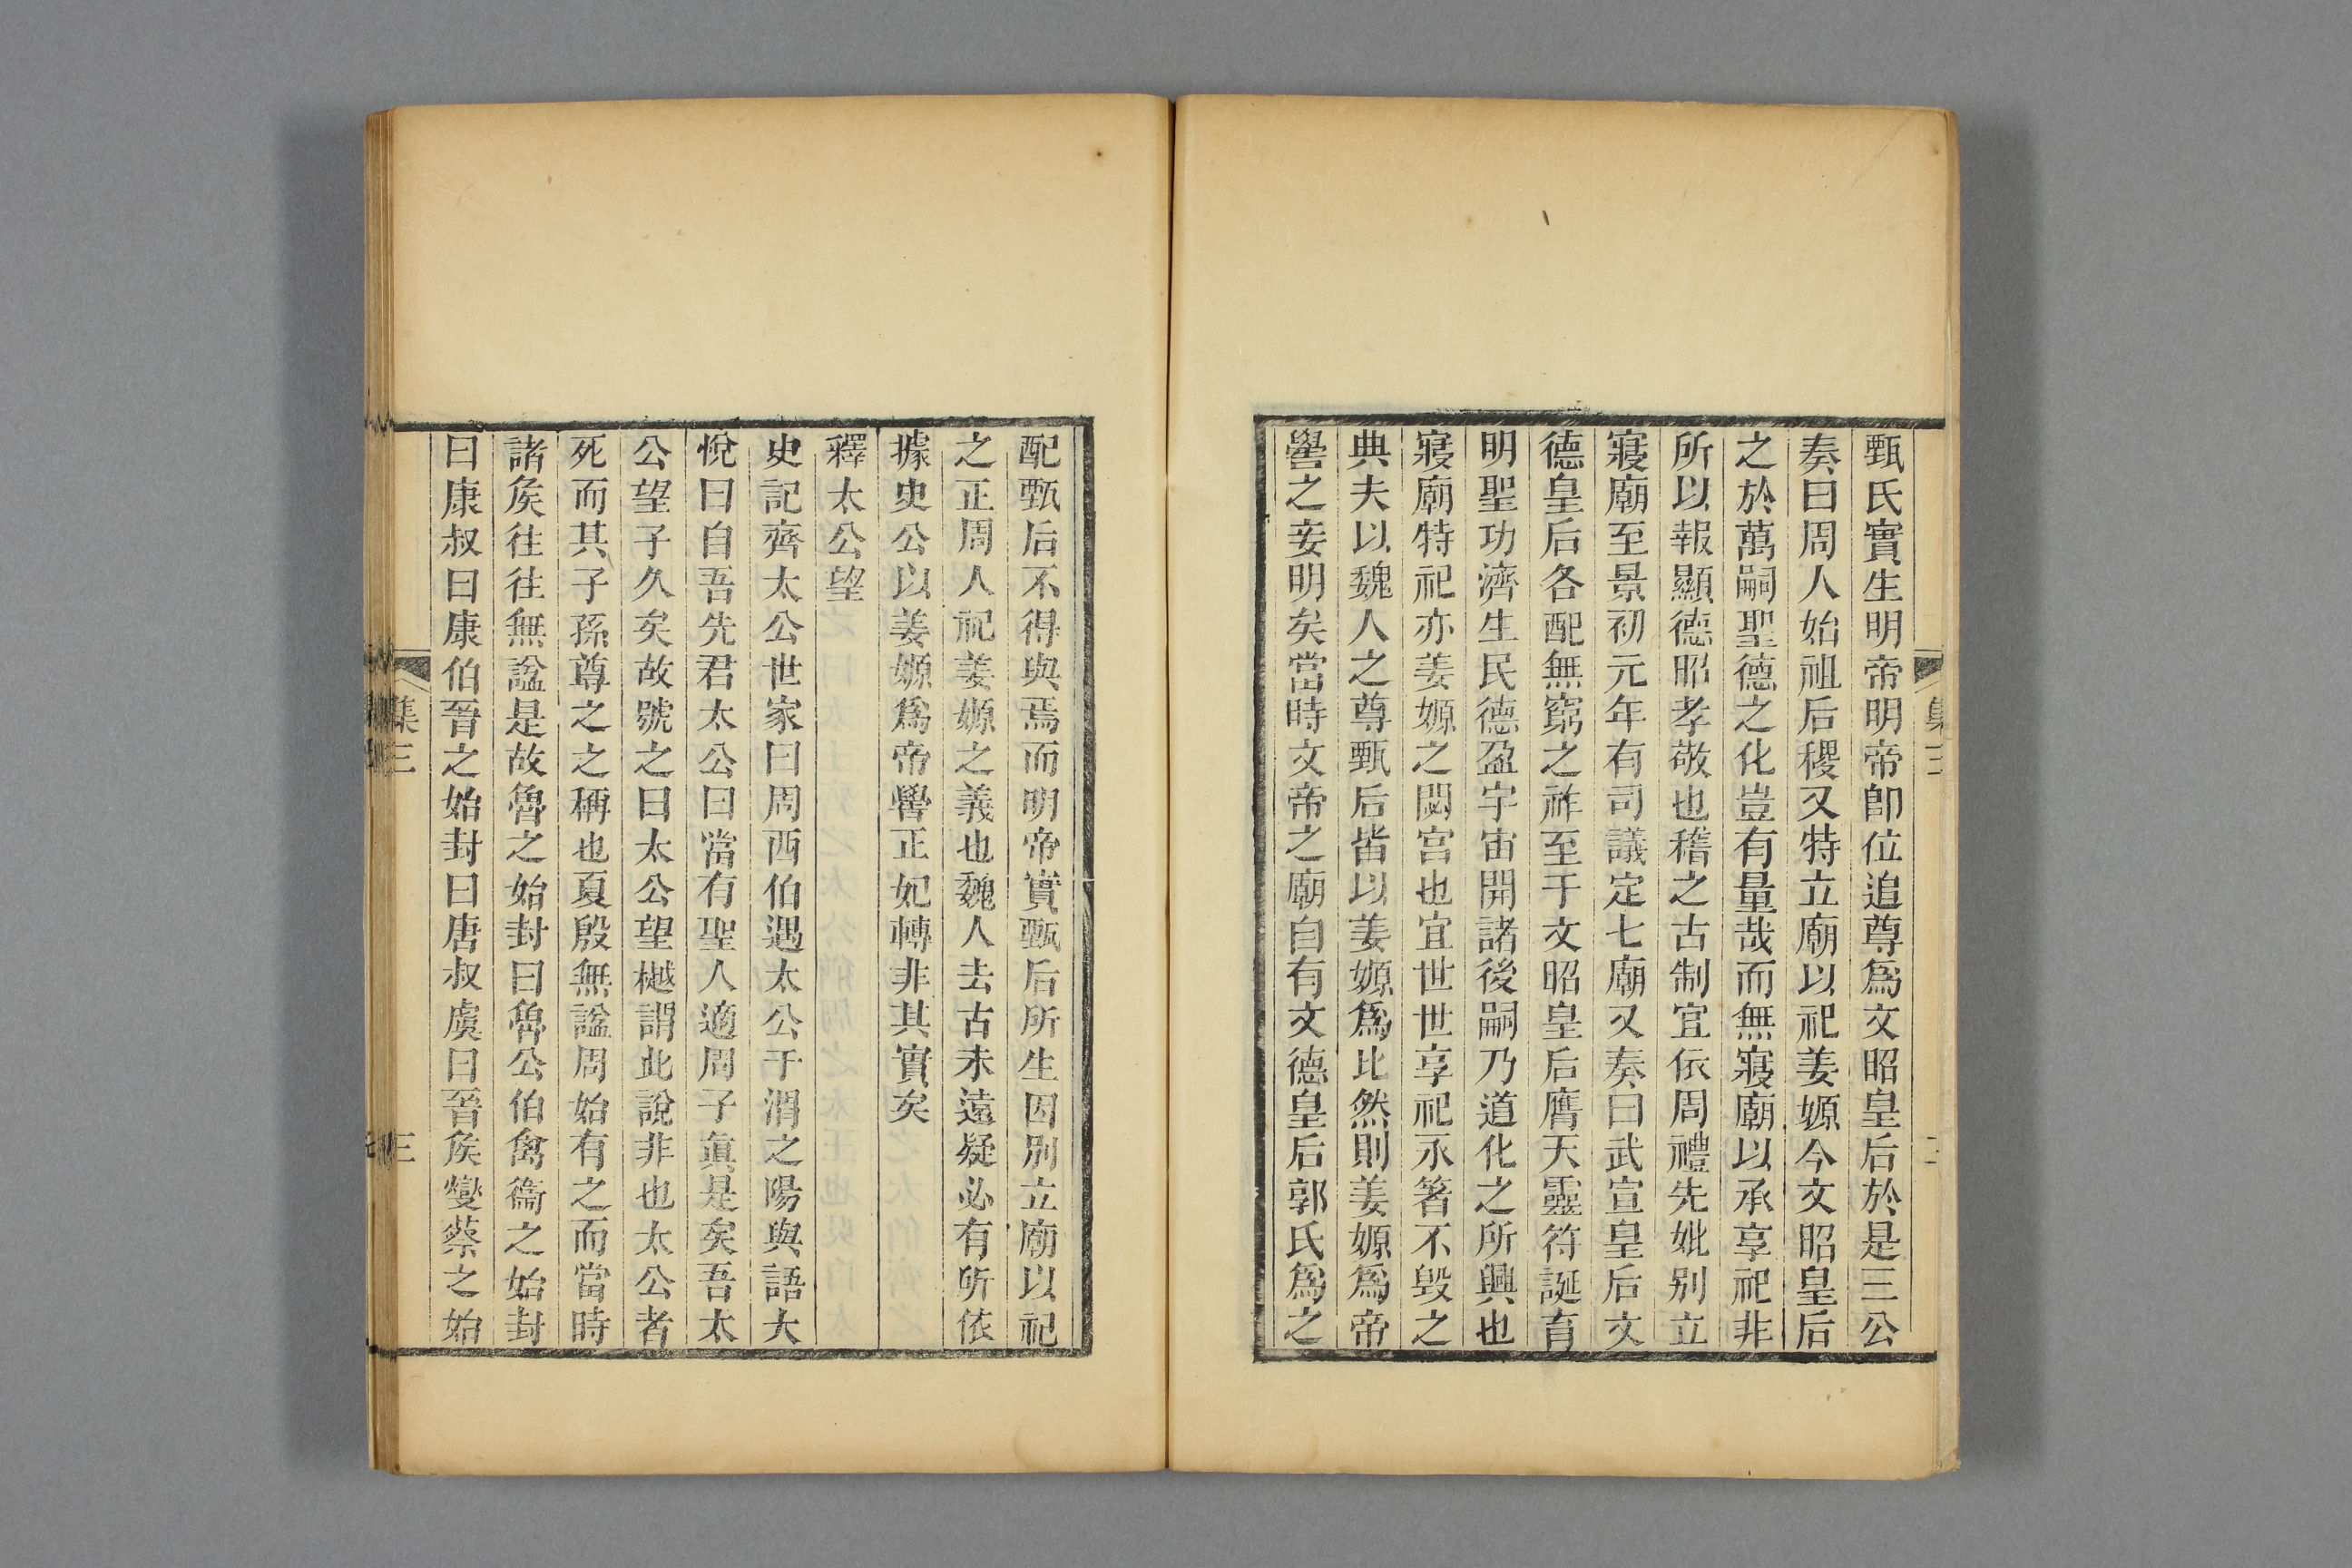 甄氏實生明帝明帝卽位追尊爲文昭皇后於是三公
奏曰周人始祖后稷又特立廟以祀姜嫄今文昭皇后
之於萬嗣聖德之化豈有量哉而無寢廟以承享祀非
所以報顯德昭孝敬也稽之古制宜依周禮先妣别立
寢廟至景初元年有司議定七廟又奏曰武宣皇后文
德皇后各配無窮之祚至于文昭皇后膺天靈符誕育
明聖功濟生民德盈宇宙開諸後嗣乃道化之所興也
寢廟特祀亦姜嫄之閟宮也宜世世享祀永著不毁之
典夫以魏人之尊甄后皆以姜嫄爲比然則姜嫄爲帝
嚳之妾明矣當時文帝之廟自有文德皇后郭氏爲之
集三
配甄后不得與焉而明帝實甄后所生因别立廟以祀
之正周人祀姜嫄之義也魏人去古未遠疑必有所依
據史公以姜嫄爲帝嚳正妃轉非其實矣
釋太公望
史記齊太公世家曰周西伯遇太公于渭之陽與語大
悅曰自吾先君太公曰當有聖人適周子眞是矣吾太
公望子久矣故號之曰太公望樾謂此說非也太公者
死而其子孫尊之之稱也夏殷無諡周始有之而當時
諸矦往往無諡是故魯之始封曰魯公伯禽衞之始封
曰康叔曰康伯晉之始封曰唐叔虞曰晉矦燮蔡之始
集三
三